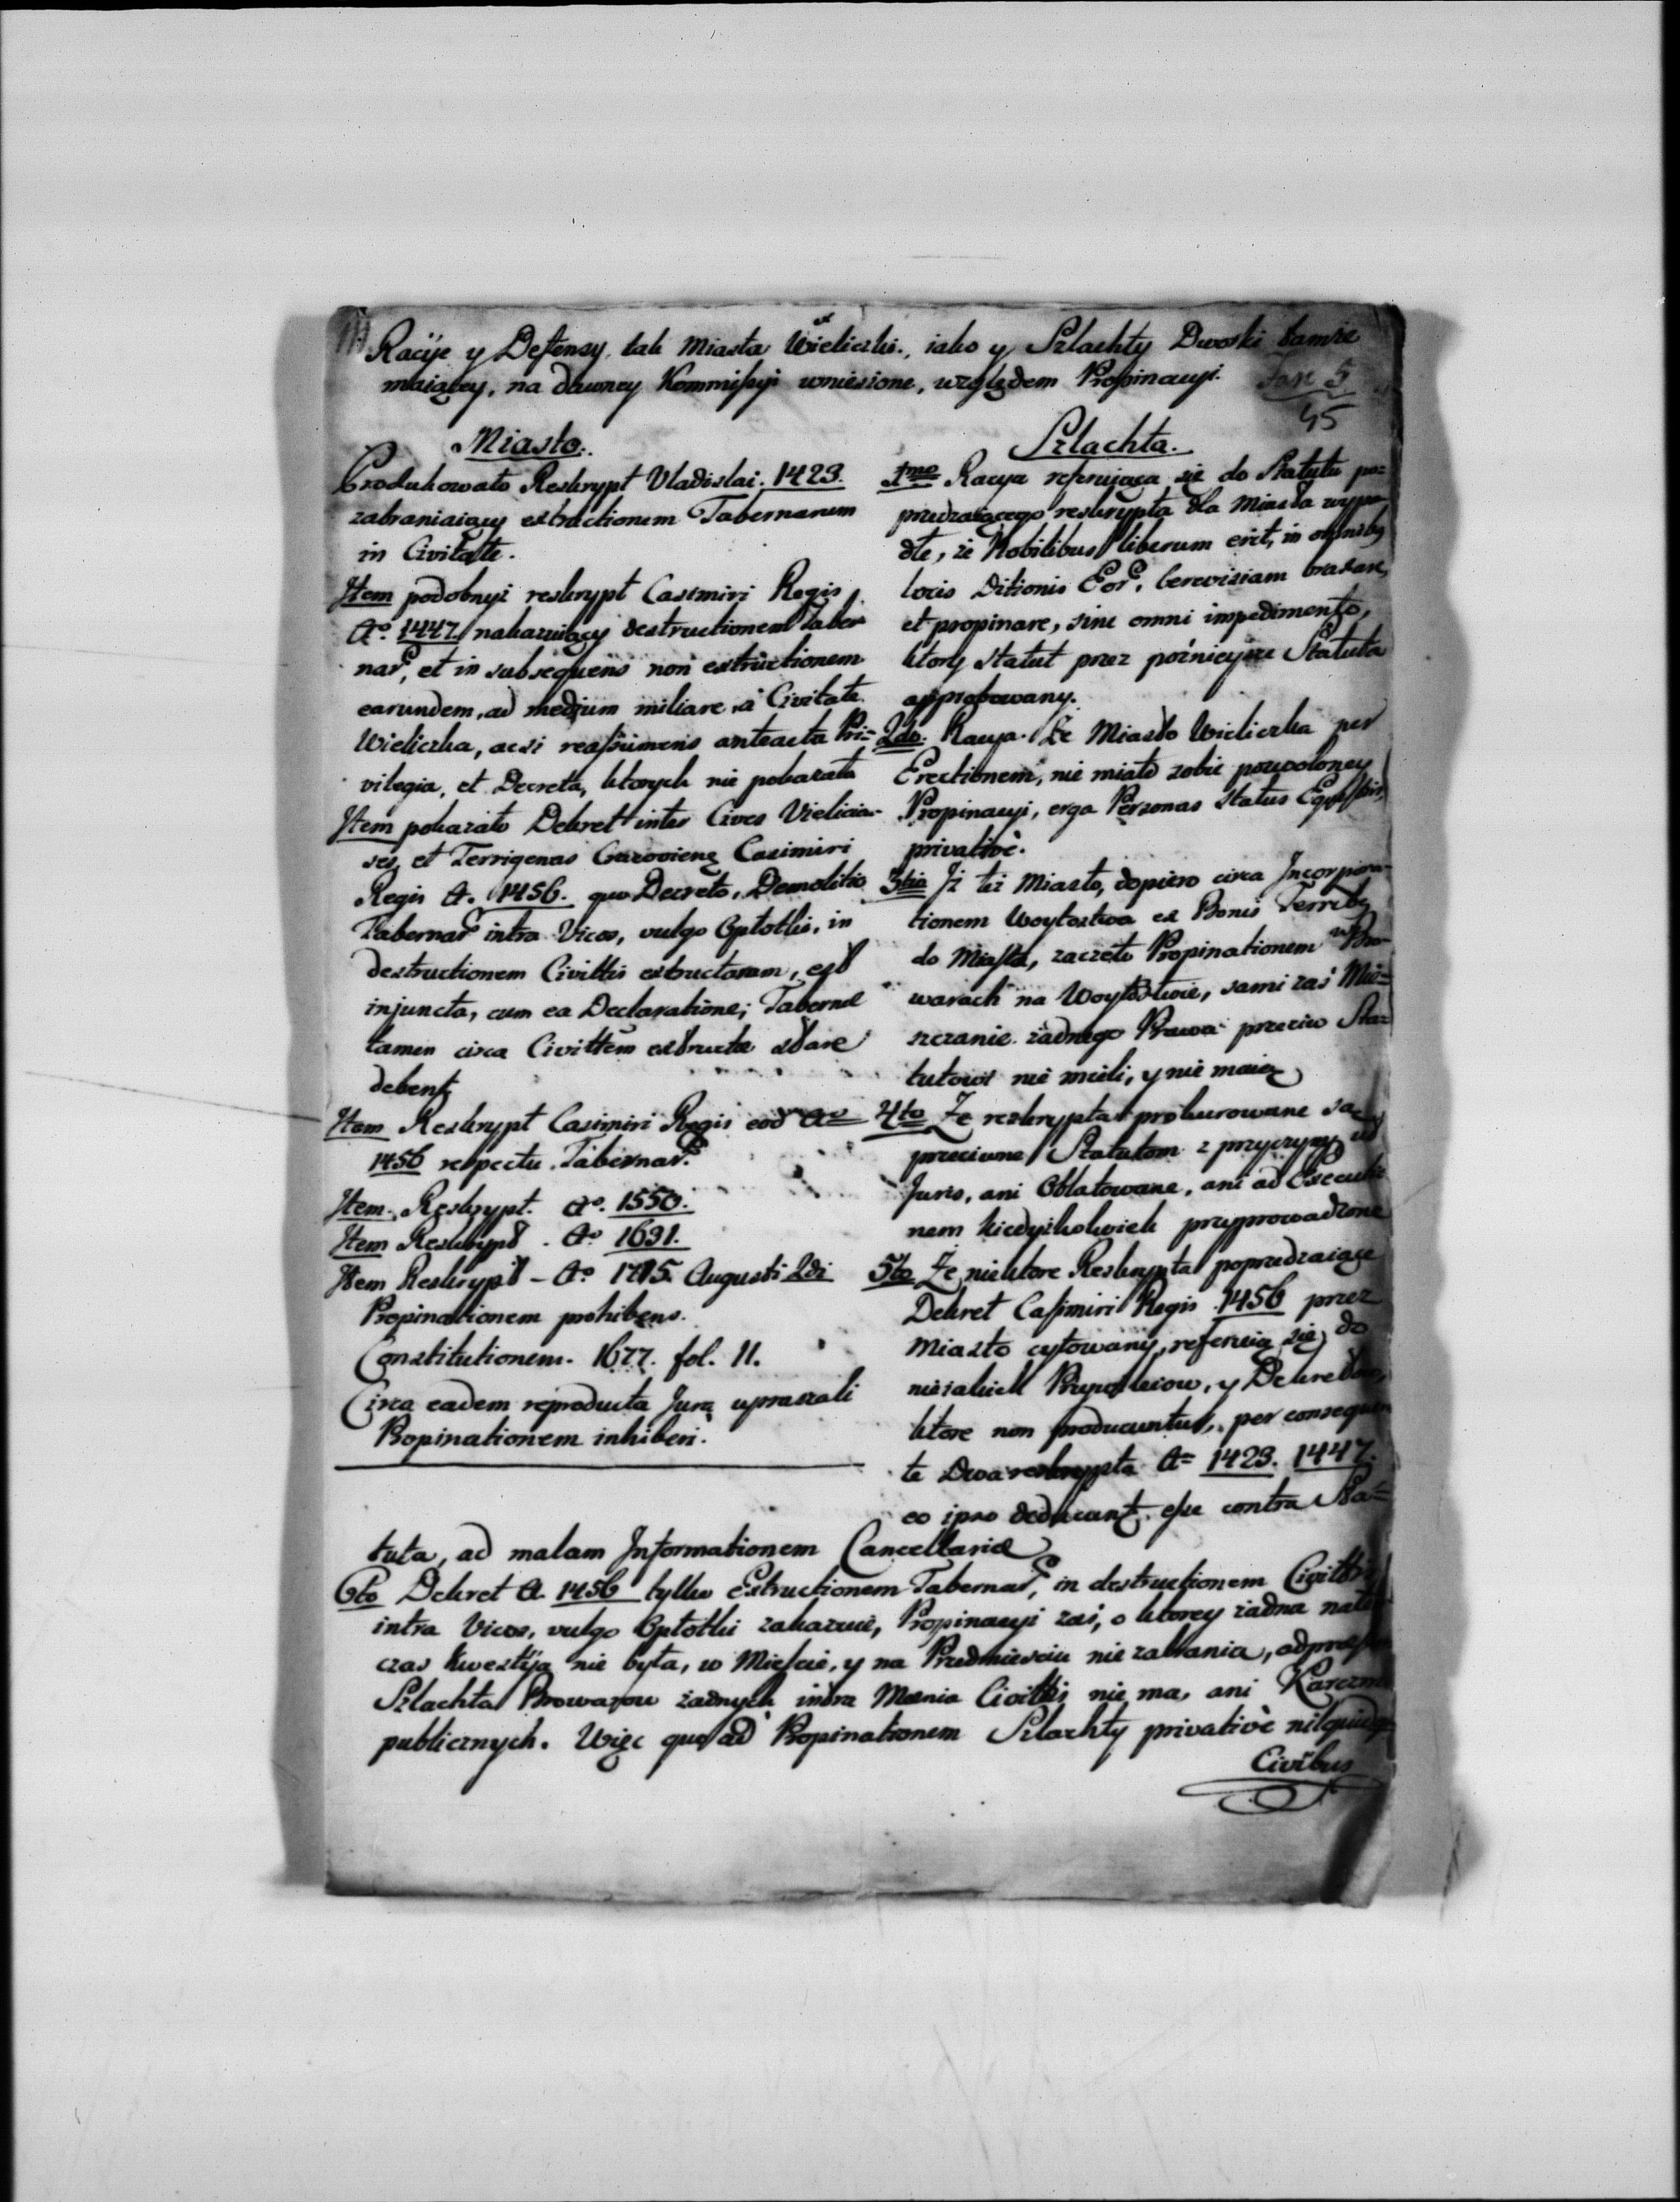 Racije y Defensy, tak Miasta Wieliczki, iako y Szlachty Dworki tamże
maiącey, na dawney Kommissyi wniesione, względem Propinacyi.
Fasc 5
45
Miasto.
Produkowało Reskrypt Vladislai. 1423.
zabraniaiący extructionem Tabernarum
in Civitate.
Item podobnyi reskrypt Casimiri Regis
Aº. 1447. nakazuiący destructionem Taber
nar, et in subsequens non extructionem
earundem, ad medium miliare, à Civitate
Wieliczka, acsi reassumens anteacta Pri-
vilegia, et Decreta, ktorych nie pokazało
Item pokazało Dekret inter Cives Vielicien-
ses, et Terrigenas Casimiri
Regis A. 1456. quo Decreto, Demolitio
Tabernar intra Vicos, vulgo Opłotki, in
destructionem Civittis extructarum, est
injuncta, cum ea Declaratione; Tabernæ
tamen circa Civittem extructæ stare
debent
Item Reskrypt Casimiri Regis eod Aº
1456 respectu Tabernar.
Item. Reskrypt. Aº. 1550.
Item Reskrypt. Aº 1691.
Item Reskrypt - Aº 1715. Augusti 2di
Propinationem prohibens.
Constitutionem. 1677. fol. 11.
Circa eadem reproducta Jura upraszali
Propinationem inhiberi.
Szlachta.
1mo Racya referuiąca się do Statutu po=
przedzaiącego reskrypta dla Miasta wypa
dłe, że Nobilibus liberum erit, in omnibus
locis Ditionis Eor, cerevisiam braxare,
et propinare, sine omni impedimento,
ktory statut przez poźnieysze Statuta
approbowany.
2do. Racya. Że Miasto Wieliczka per
Erectionem, nie miało sobie pozwoloney
Propinacyi, erga Personas Status Equestris,
privativè.
3tio Jż też Miasto, dopiero circa Incorpora-
tionem Woytostwa ex Bonis
do Miasta, zaczęło Propinationem w Bro-
warach na Woytostwie, sami zaś Mie=
szczanie żadnego Prawa przeciw Sta=
tutowi nie mieli, y nie maią
4to Że reskrypta prokurowane są
przeciwne Statutom z przyczyny
Juris, ani Oblatowane, ani ad Executio
nem kiedyżkolwiek przyprowadzone
5to Że niektore Reskrypta poprzedzaiące
Dekret Casimiri Regis 1456 przez
Miasto cytowany, referuią się do
nieiakich Przywileiow, y Dekretow,
ktore non producuntur, per consequen
te Dwa reskrypta Aº 1423. 1447.
eo ipso deducunt esse contra Sta=
tuta, ad malam Informationem Cancellariæ
6to Dekret A. 1456 tylko Extructionem Tabernar, in destructionem Civittis
intra Vicos, vulgo Opłotki zakazuie, Propinacyi zaś, o ktorey żadna na ten
czas kwestija nie była, w Mieście, y na Przedmiesciu nie zabrania,
Szlachta Browarow żadnych intra Mænia Civittis nie ma, ani Karczm
publicznych. Więc quo ad Propinationem Szlachty privativè nil quidq
Civibus